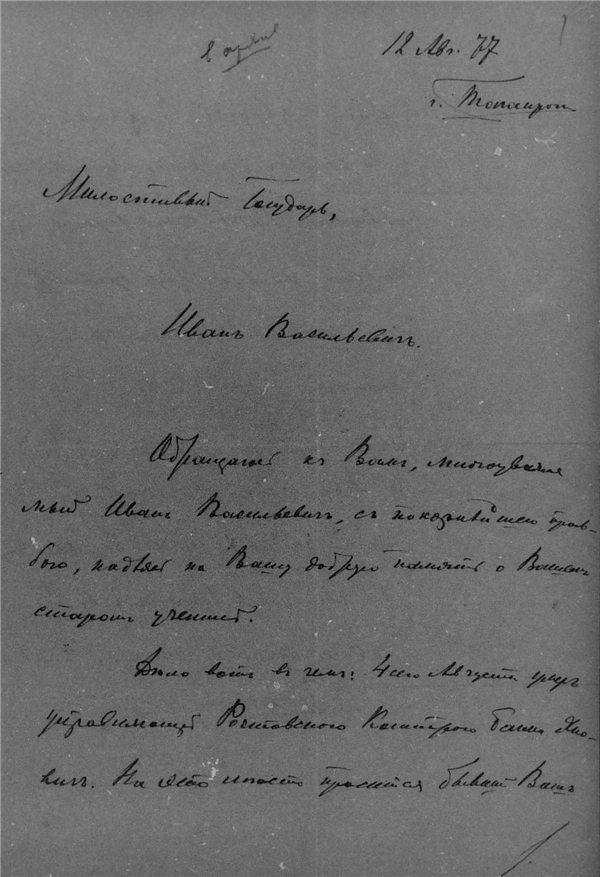 12 Авг. 77
г. Таганрог
Милостивый Государь,
Иванъ Васильевичъ.
Обращаюсь къ Вамъ, многоуважае
мый Иванъ Васильевичъ, съ покорнѣйшею прось-
бою, надѣясь на Вашу добрую память о Вашемъ
старомъ ученикѣ.
Дѣло вотъ въ чемъ: 4 сего Августа умеръ
управляющій Ростовскаго Конторою банка
На это мѣсто просится бывшій Вашъ